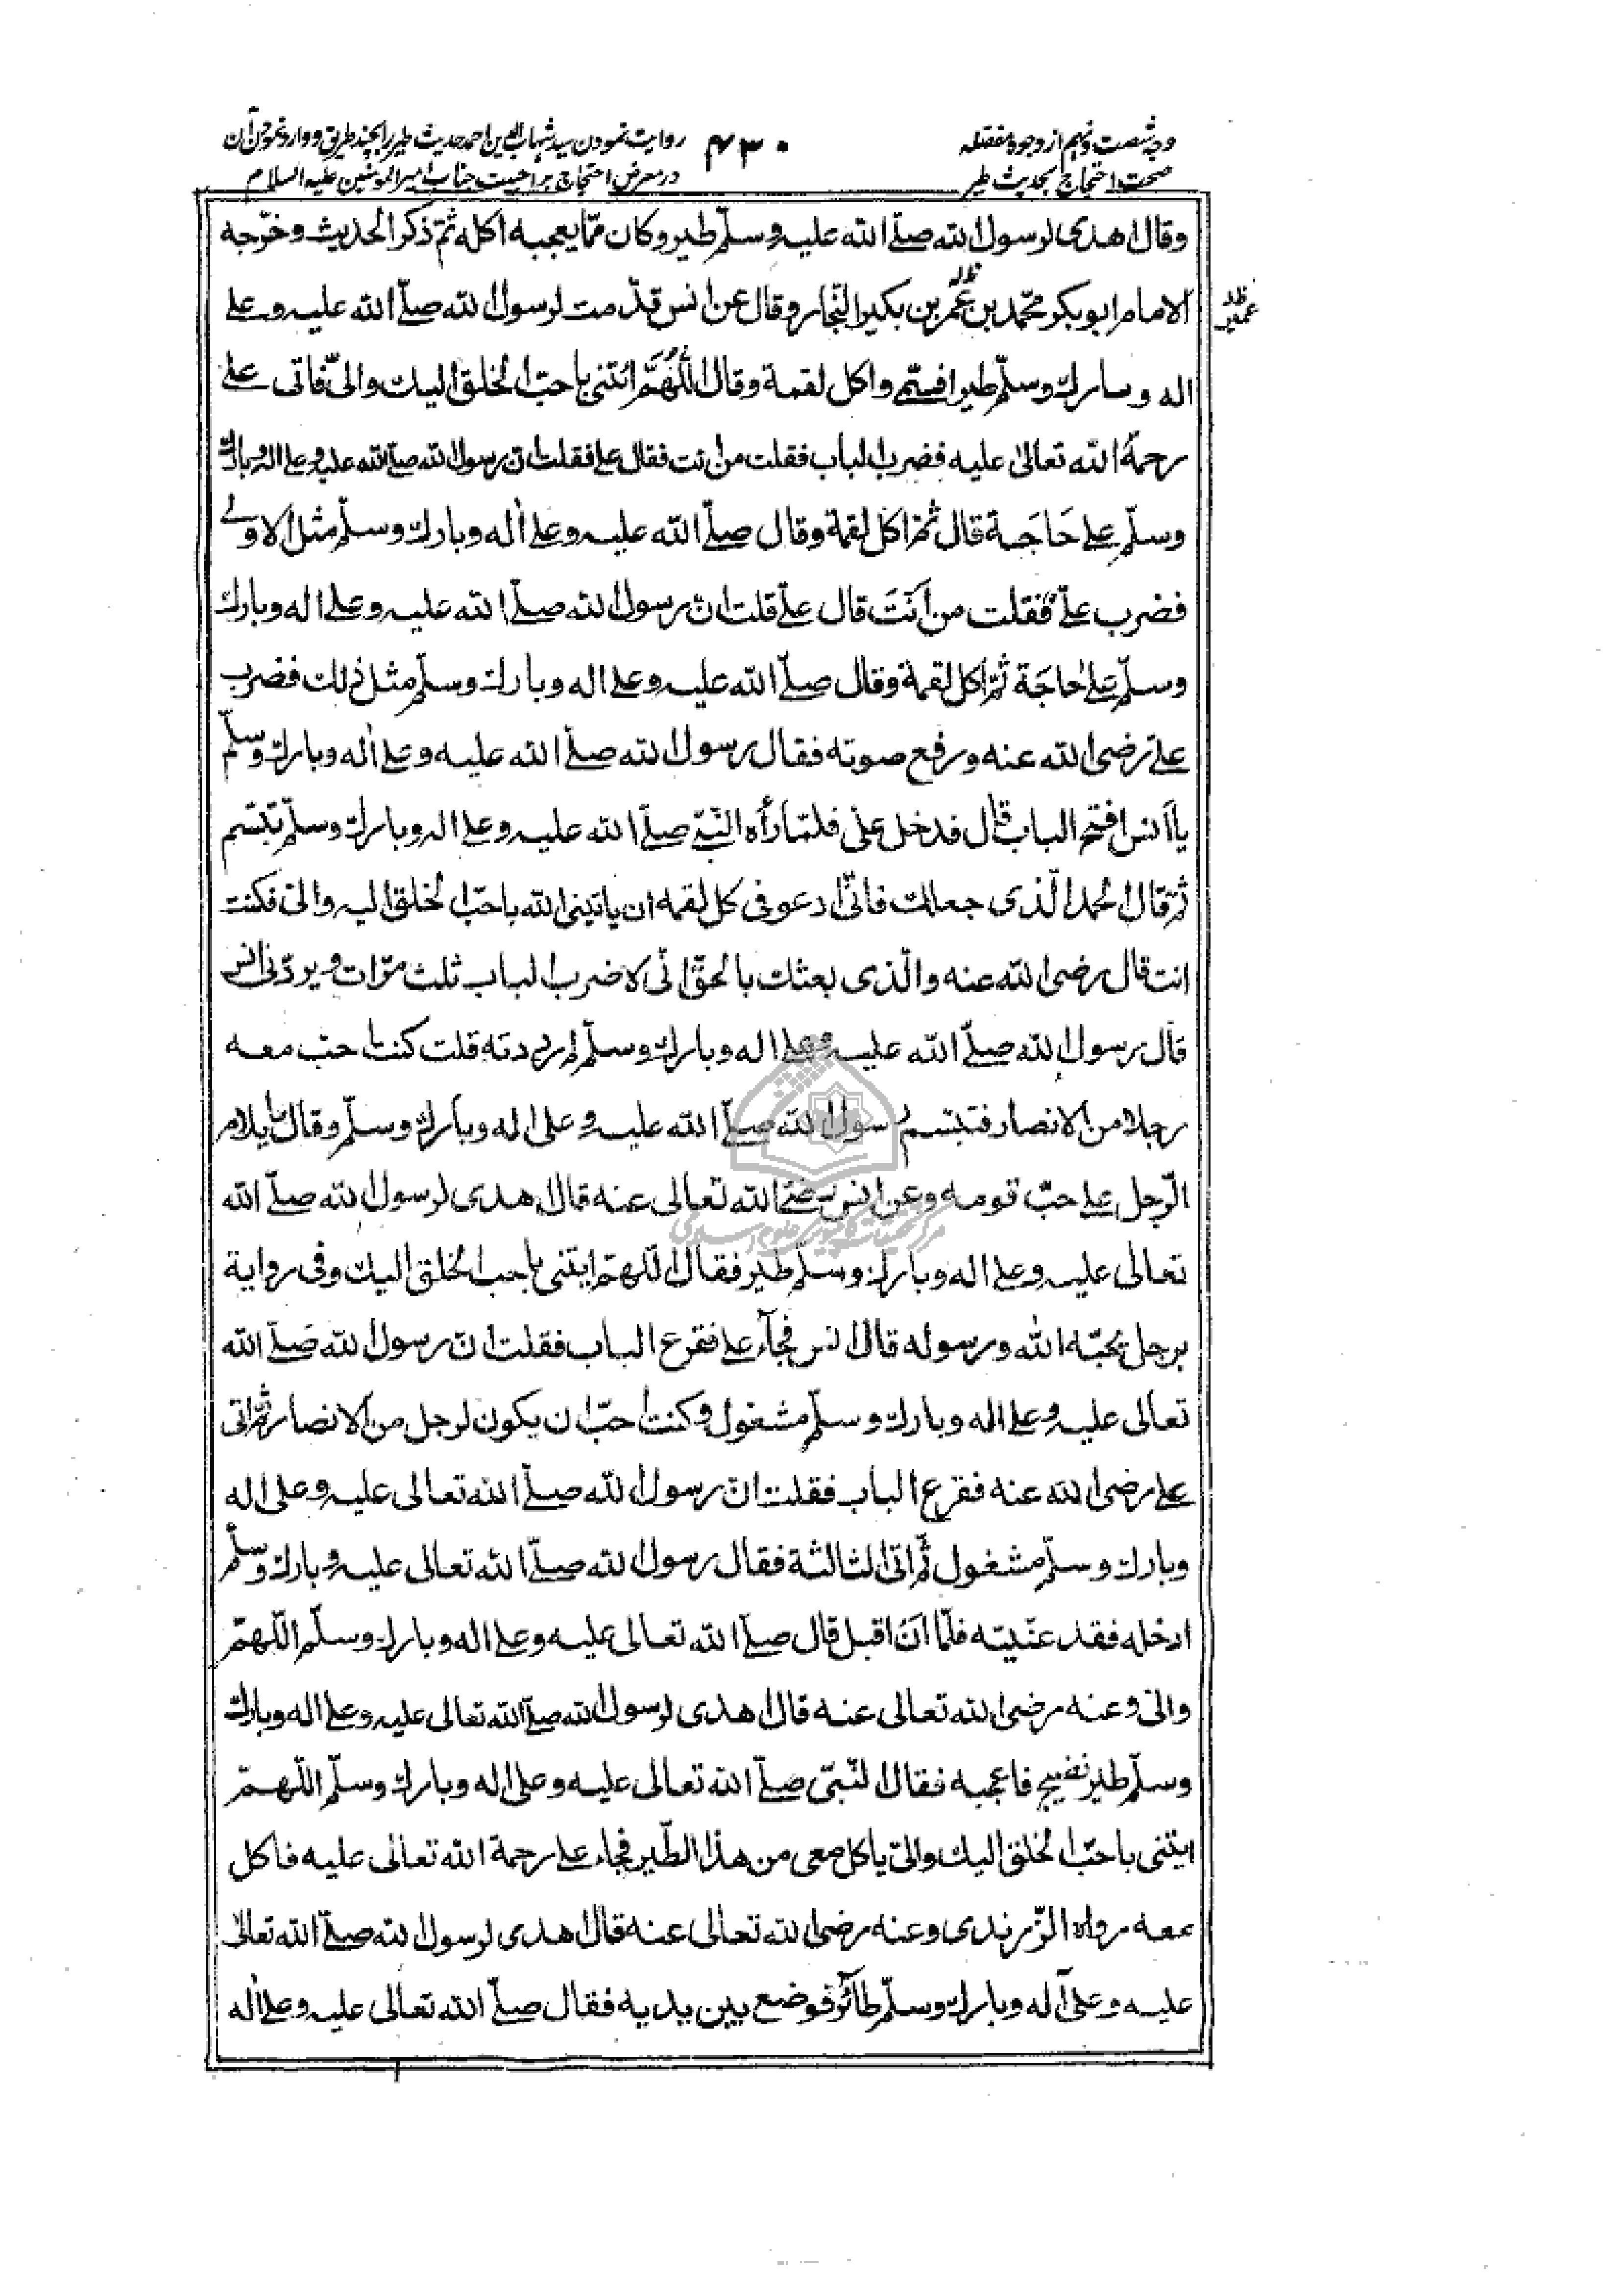 وجه شصت و نهم از وجوه مفصله
صحت احتجاج بحديث طير
۴۳۰
روايت نمودن سيد شهاب الدين احمد حديث طير را بچند طريق و وارد نمودن آن
در معرض احتجاج بر احبيت جناب امير المومنين عليه السلام
وقال اهدى لرسول الله صلّے الله عليه وسلّم طير وكان ممّا يعجبه اكله ثمّ ذكر الحديث وخرّجه
الامام ابو بكر محمّد بن عمر بن بكير النّجار وقال عن انس قدّمت لرسول الله صلّے الله عليه وعلے
عمير ظ
اله وبارك وسلّم طيرا فسمّى واكل لقمة وقال اللّهُمَّ ائتنى باحبّ الخلق اليك والىّ فاتى علے
رحمة الله تعالىٰ عليه فضرب الباب فقلت من انت فقال علے فقلت ان رسول الله صلّے الله عليه وعلے اله وبارك
وسلّم علے حَاجَة قال ثمّ اكل لقمة وقال صلّے الله عليه وعلے اله وبارك وسلّم مثل الاولے
فضرب علےّ فقلت من اَنتَ قال علےّ قلت انّ رسول الله صلّے الله عليه وعلے اله وبارك
وسلّم علے حاجَة ثمّ اكل لقمة وقال صلّے الله عليه وعلے اله وبارك وسلّم مثل ذلك فضرب
علےّ رضى الله عنه ورفع صوته فقال رسول الله صلّے الله عليه وعلے اله وبارك وسلّم
يا انس افتح الباب قال فدخل علىّ فلمّا رأه النّبىّ صلّے الله عليه وعلے اله وبارك وسلّم تبسّم
ثمّ قال الحمد الّذى جعلك فانّى ادعو فى كل لقمه ان ياتينى الله باحبّ الخلق اليه والىّ فكنت
انت قال رضى الله عنه والّذى بعثك بالحقّ انّى لاضرب الباب ثلث مرّات ويردّنى انس
قال رسول الله صلّے الله عليه وعلے اله وبارك وسلّم لم رددته قلت كنت احب معه
رجلا من الانصار فتبسّم رسول الله صلّے الله عليه وعلى اله وبارك وسلّم وقال ما يلام
الرّجل علے حبّ قومه وعن انس رضى الله تعالى عنه قال اهدى لرسول الله صلّے الله
تعالى عليه وعلے اله وبارك وسلّم طير فقال اللّهمّ ايتنى باحب الخلق اليك وفى رواية
برجل يحبّه الله ورسوله قال انس فجآء علے فقرع الباب فقلت ان رسول الله صَلّے الله
تعالى عليه وعلے اله وبارك وسلّم مشغول وكنت احبّ ان يكون لرجل من الانصار ثمّ اتى
علے رضى الله عنه فقرع الباب فقلت انّ رسول الله صلّے الله تعالى عليه وعلى اله
وبارك وسلّم مشغول ثمّ اتى الثالثة فقال رسول الله صلّے الله تعالى عليه وبارك وسلّم
ادخله فقد عنّيته فلمّا اَن اقبل قال صلّے الله تعالى عليه وعلے اله وبارك وسلّم اللّهمّ
والىّ وعنه رضى الله تعالى عنه قال اهدى لرسول الله صلّے الله تعالى عليه وعلے اله وبارك
وسلّم طير نضيج فاعجبه فقال النّبىّ صلّے الله تعالى عليه وعلى اله وبارك وسلّم اللّهمّ
ايتنى باحبّ الخلق اليك والىّ ياكل معى من هذا الطّير فجاء علے رحمة الله تعالى عليه فاكل
معه رواه الزّرندى وعنه رضى الله تعالى عنه قال اهدى لرسول الله صلّے الله تعالىٰ
عليه وعلى آله وبارك وسلّم طائر فوضع بين يديه فقال صلّے الله تعالى عليه وعلے اله
مركز تحقيقات كامپيوترى علوم اسلامى